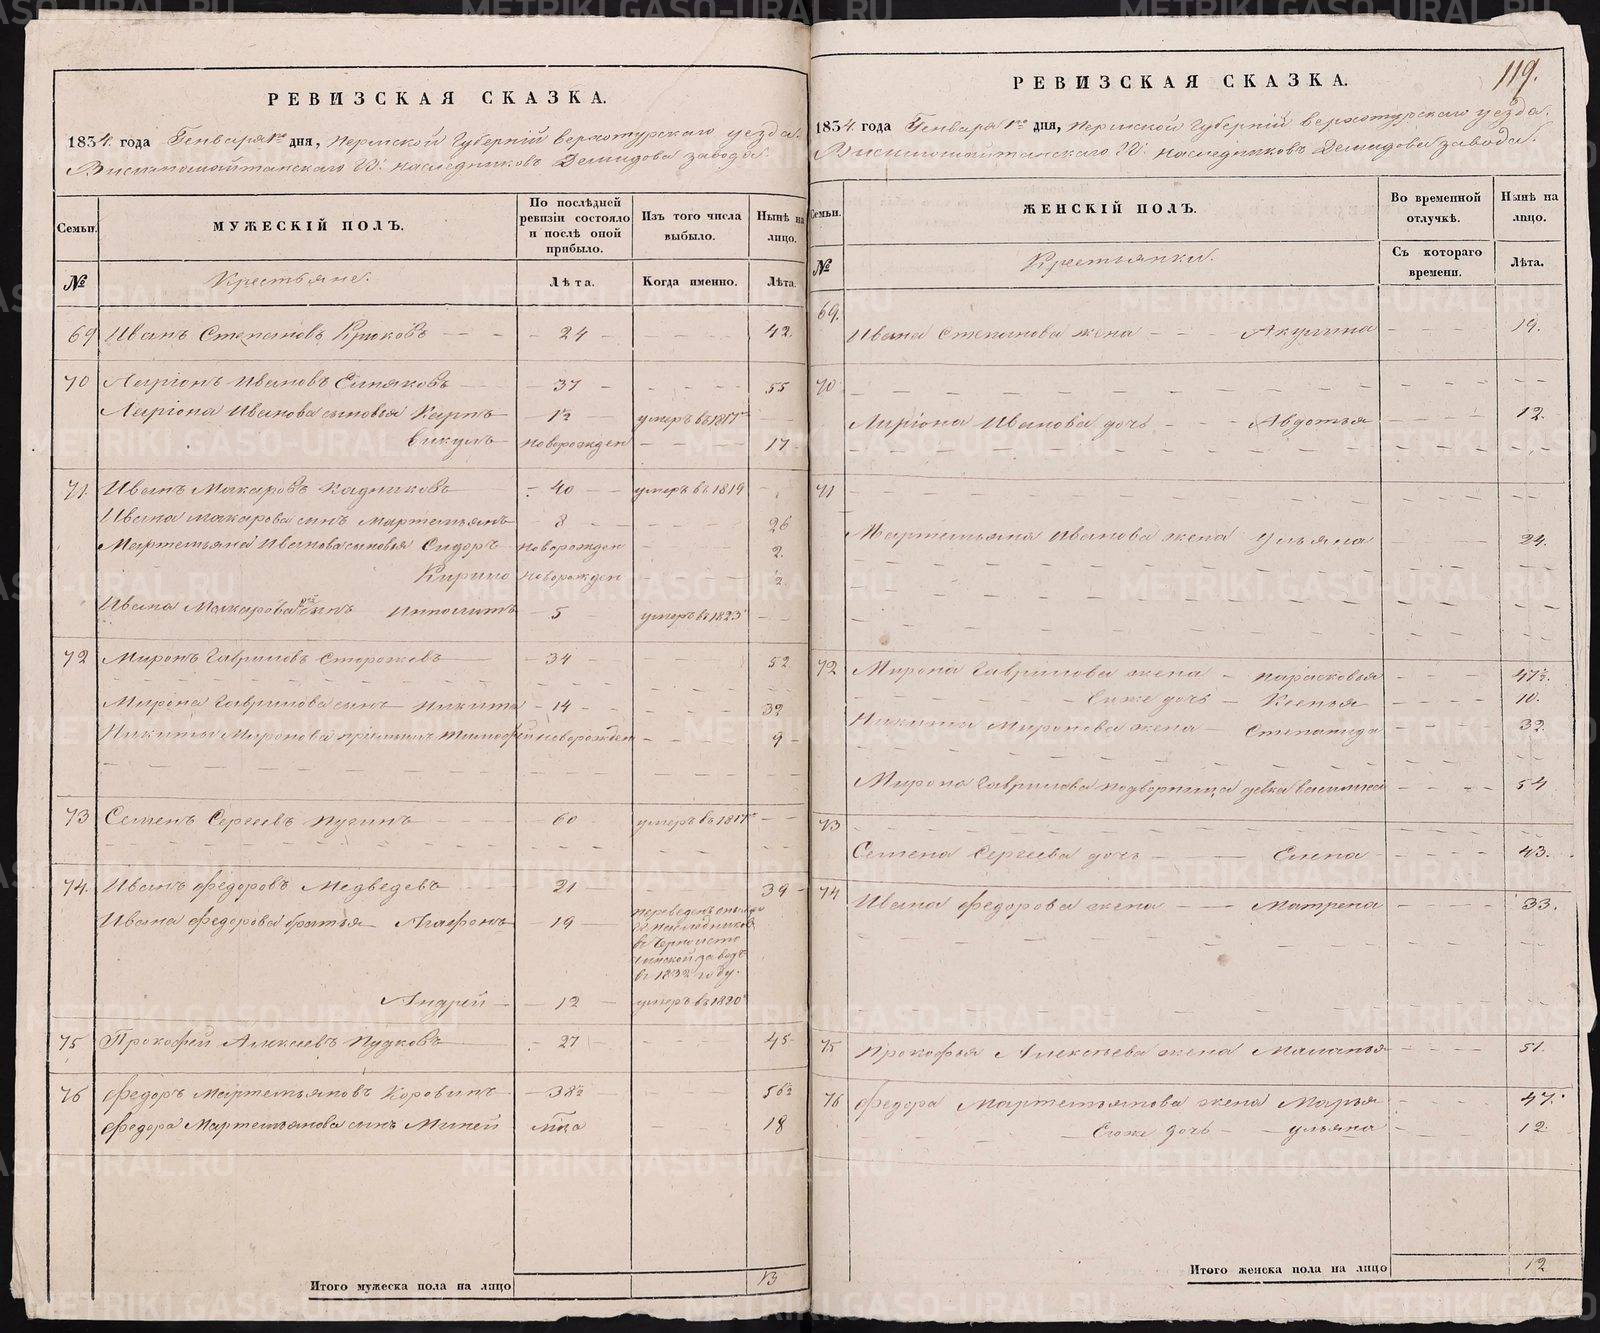 РЕВИЗСКАЯ СКАЗКА.
1834. года Генваря 1го дня, Пермской Губерніи Верхотурскаго уезда.
Висимошайтанскаго ГГ: наследниковъ Демидова завода.
Семьи.
МУЖЕСКІЙ ПОЛЪ.
По послѣдней ревизіи состояло и послѣ оной прибыло.
Изъ того числа выбыло.
Нынѣ на лицо.
№
Крестьяне.
Лѣта.
Когда именно.
Лѣта.
69 Иванъ Степановъ Крюковъ 24 42.
70 Ларіонъ Ивановъ 37 55
Ларіона Иванова сыновья Карпъ 1½ умеръ въ 1817
Викулъ новорожден 17
71. Иванъ Макаровъ Кадниковъ 40 умеръ въ 1819
Ивана Макарова сынъ Мартемьянъ 8 26
Мартемьяна Иванова сыновья Сидоръ новорожден 2.
Кирило новорожден ½
Ивана Макарова сынъ Иполитъ 5 умеръ въ 1823
72 Миронъ Гавриловъ Сторожевъ 34 52
Мирона Гаврилова сынъ Никита 14 32
Никиты Миронова пріимышъ Тимофей новорожден 9
73 Семенъ Сергеевъ Пугинъ 60 умеръ въ 1817
74. Иванъ Федоровъ Медведевъ 21 39
Ивана Федорова братья Агафонъ 19 переведенъ
наследниковъ
въ Черноисто
чинской заводъ
въ 1832 году.
Андрей 12 умеръ въ 1820
75 Прокофей Алексеевъ Пудковъ 27 45
76 Федоръ Мартемьяновъ Коровинъ 38½ 56½
Федора Мартемьянова сынъ Миней 18
Итого мужеска пола на лицо 13
119.
РЕВИЗСКАЯ СКАЗКА.
1834. года Генваря 1го дня, Пермской Губерніи Верхотурскаго уезда.
Висимошайтанскаго ГГ: наследниковъ Демидова завода.
Семьи.
ЖЕНСКІЙ ПОЛЪ.
Во временной отлучкѣ.
Нынѣ на лицо.
№
Крестьянки.
Съ котораго времени.
Лѣта.
69.
Ивана Степанова жена Акулина 19.
70
Ларіона Иванова дочь Авдотья 12.
71
Мартемьяна Иванова жена Ульяна 24.
72 Мирона Гаврилова жена Парасковья 47½.
Ево же дочь Ксенья 10.
Никиты Миронова жена Степанида 32.
Мирона Гаврилова подворница девка Василиса 54
73
Семена Сергеева дочь Елена 43.
74 Ивана Федорова жена Матрена 33.
75 Прокофья Алексеева жена Маланья 51.
76 Федора Мартемьянова жена Марья 47.
Ево же дочь Ульяна 12.
Итого женска пола на лицо 12
METRIKI.GASO-URAL.RU